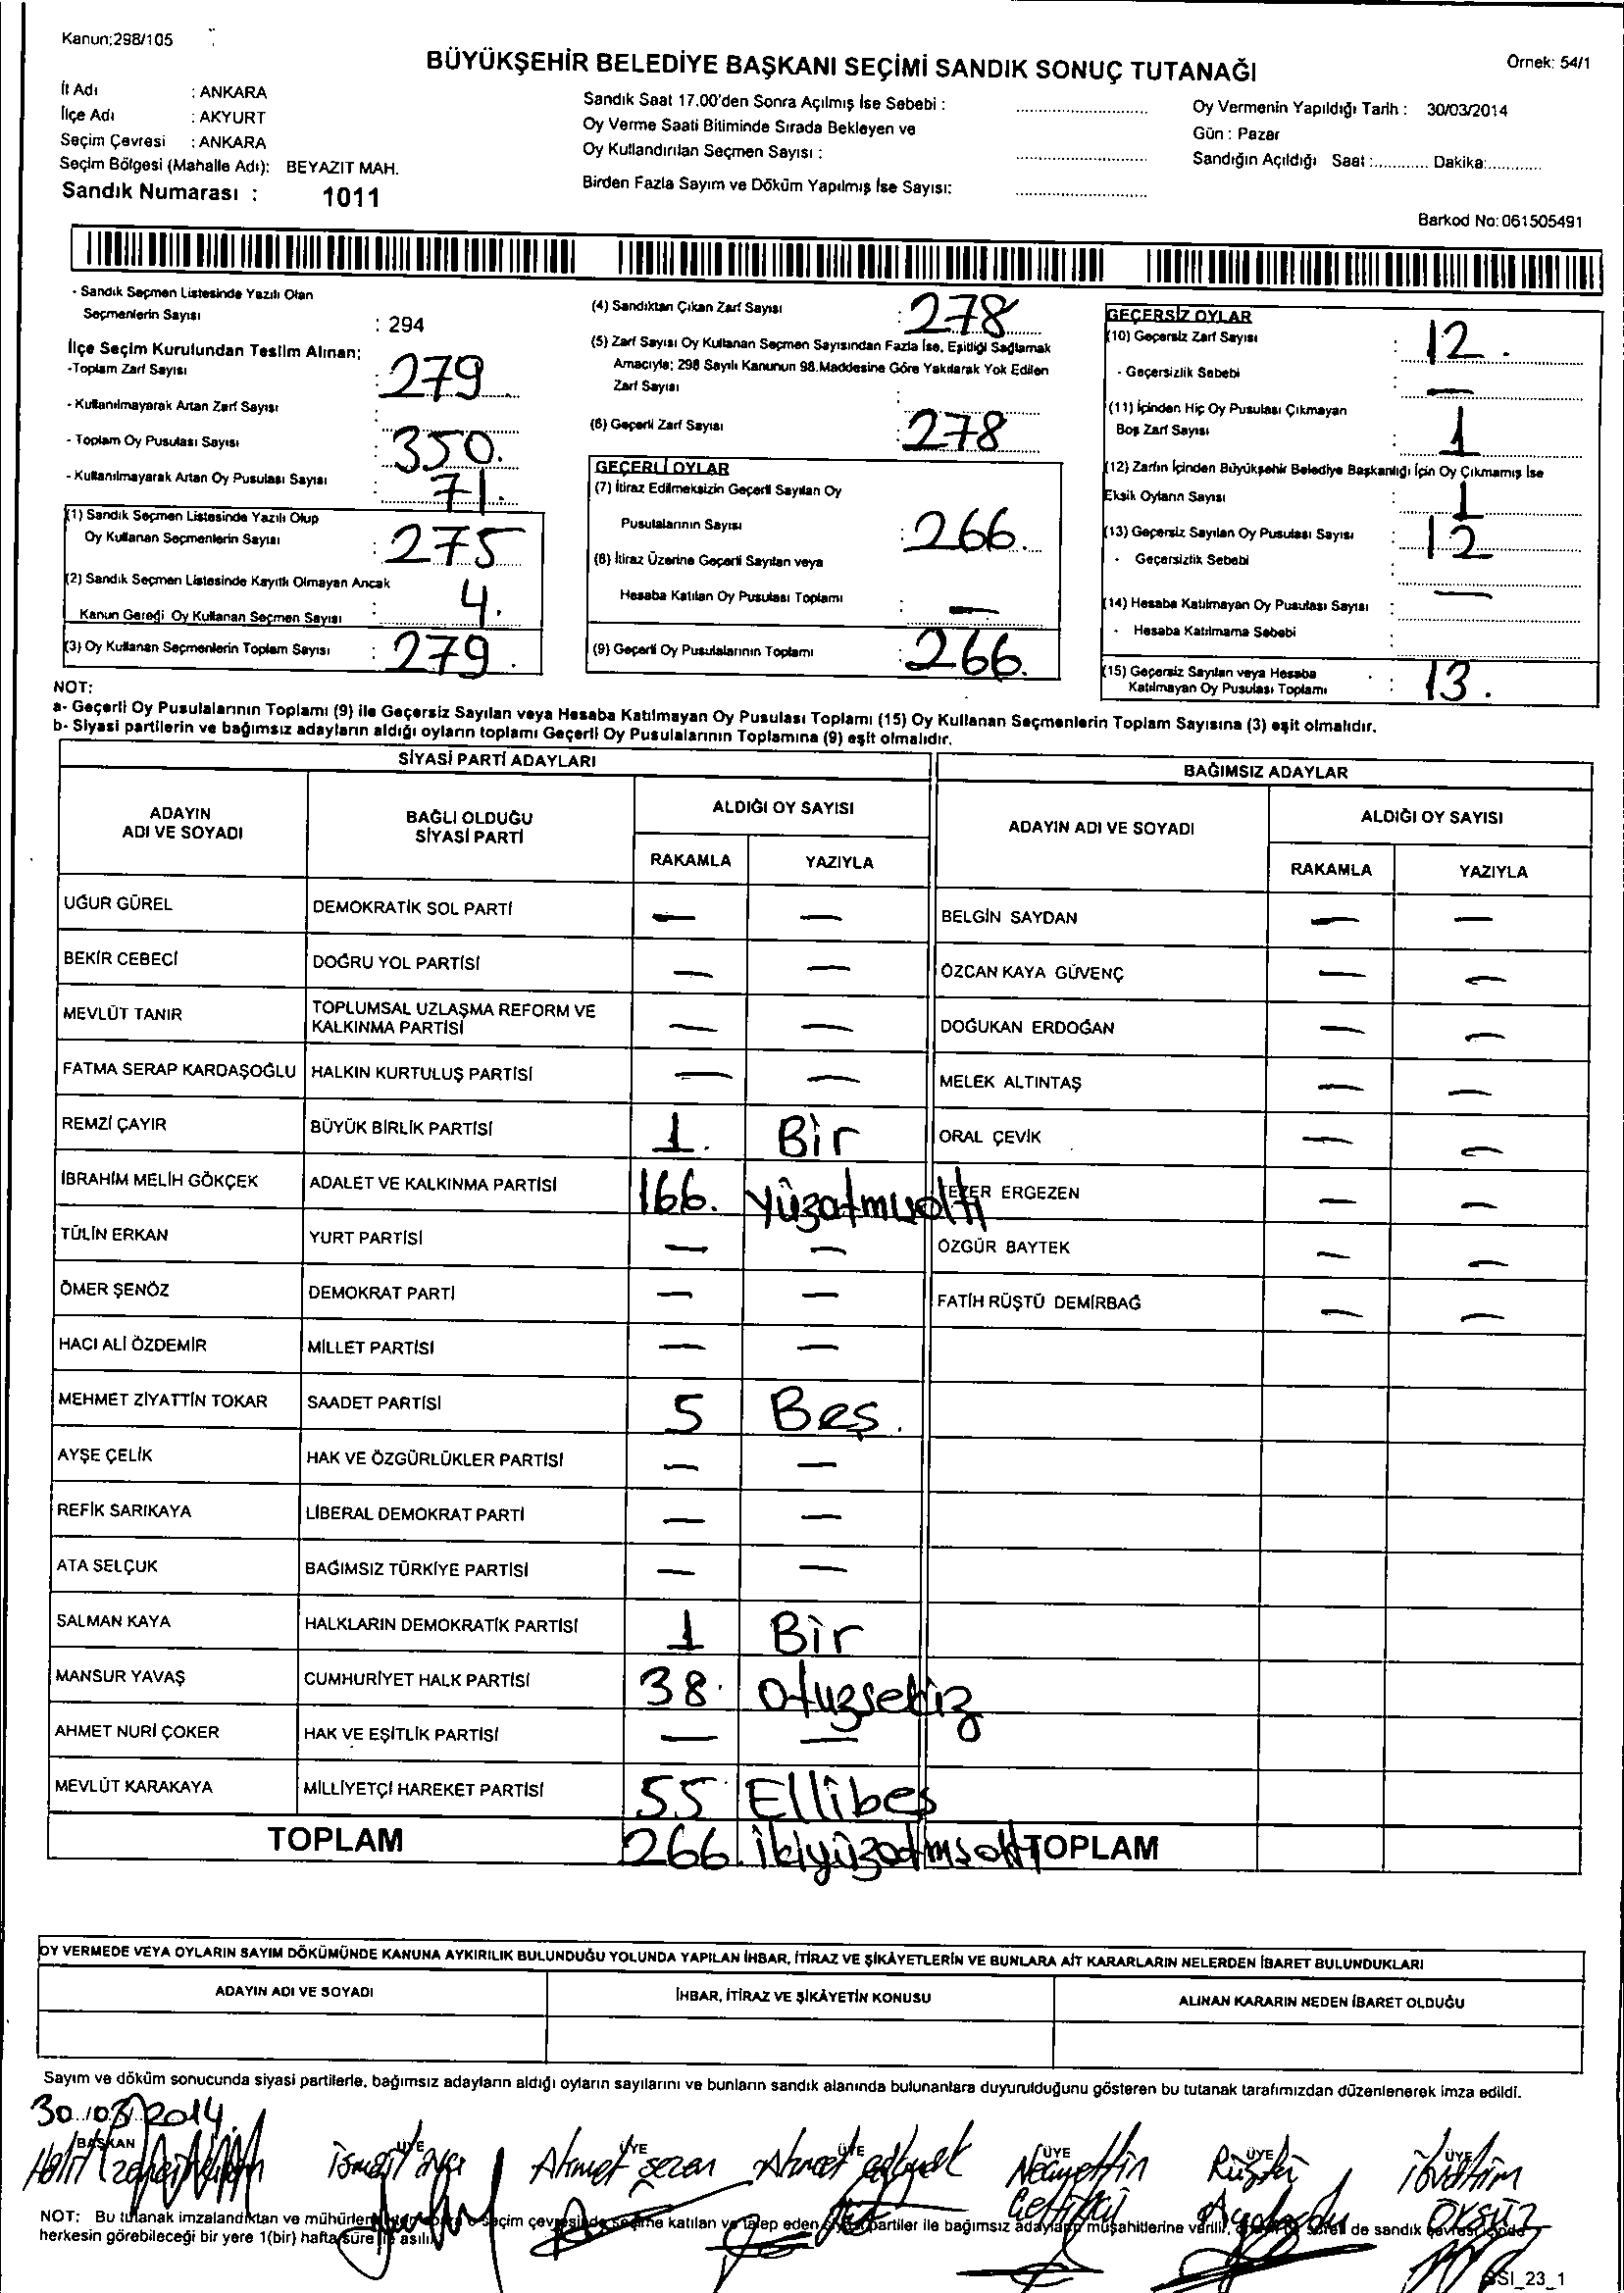 Kanun;298/105
BÜYÜKŞEHİR BELEDİYE BAŞKANI SEÇİMİ SANDIK SONUÇ TUTANAĞI
Örnek: 54/1
İl Adı : ANKARA
İlçe Adı : AKYURT
Seçim Çevresi : ANKARA
Seçim Bölgesi (Mahalle Adı): BEYAZIT MAH.
Sandık Numarası : 1011
Sandık Saat 17.00'den Sonra Açılmış İse Sebebi :
Oy Verme Saati Bitiminde Sırada Bekleyen ve
Oy Kullandırılan Seçmen Sayısı :
Birden Fazla Sayım ve Döküm Yapılmış İse Sayısı:
Oy Vermenin Yapıldığı Tarih : 30/03/2014
Gün : Pazar
Sandığın Açıldığı Saat :............ Dakika:.............
Barkod No: 061505491
- Sandık Seçmen Listesinde Yazılı Olan
Seçmenlerin Sayısı : 294
İlçe Seçim Kurulundan Teslim Alınan;
-Toplam Zarf Sayısı : 279
- Kullanılmayarak Artan Zarf Sayısı :
- Toplam Oy Pusulası Sayısı : 350.
- Kullanılmayarak Artan Oy Pusulası Sayısı : 71.
(1) Sandık Seçmen Listesinde Yazılı Olup
Oy Kullanan Seçmenlerin Sayısı : 275
(2) Sandık Seçmen Listesinde Kayıtlı Olmayan Ancak
Kanun Gereği Oy Kullanan Seçmen Sayısı : 4.
(3) Oy Kullanan Seçmenlerin Toplam Sayısı : 279.
(4) Sandıktan Çıkan Zarf Sayısı : 278
(5) Zarf Sayısı Oy Kullanan Seçmen Sayısından Fazla İse, Eşitliği Sağlamak
Amacıyla; 298 Sayılı Kanunun 98.Maddesine Göre Yakılarak Yok Edilen
Zarf Sayısı :
(6) Geçerli Zarf Sayısı : 278
GEÇERLİ OYLAR
(7) İtiraz Edilmeksizin Geçerli Sayılan Oy
Pusulalarının Sayısı : 266.
(8) İtiraz Üzerine Geçerli Sayılan veya
Hesaba Katılan Oy Pusulası Toplamı : —
(9) Geçerli Oy Pusulalarının Toplamı : 266.
GEÇERSİZ OYLAR
(10) Geçersiz Zarf Sayısı : 12.
- Geçersizlik Sebebi : —
(11) İçinden Hiç Oy Pusulası Çıkmayan
Boş Zarf Sayısı : 1
(12) Zarfın İçinden Büyükşehir Belediye Başkanlığı İçin Oy Çıkmamış İse
Eksik Oyların Sayısı : 1
(13) Geçersiz Sayılan Oy Pusulası Sayısı : 12
- Geçersizlik Sebebi :
(14) Hesaba Katılmayan Oy Pusulası Sayısı : —
- Hesaba Katılmama Sebebi :
(15) Geçersiz Sayılan veya Hesaba
Katılmayan Oy Pusulası Toplamı : 13.
NOT:
a- Geçerli Oy Pusulalarının Toplamı (9) ile Geçersiz Sayılan veya Hesaba Katılmayan Oy Pusulası Toplamı (15) Oy Kullanan Seçmenlerin Toplam Sayısına (3) eşit olmalıdır.
b- Siyasi partilerin ve bağımsız adayların aldığı oyların toplamı Geçerli Oy Pusulalarının Toplamına (9) eşit olmalıdır.
SİYASİ PARTİ ADAYLARI
ADAYIN ADI VE SOYADI
BAĞLI OLDUĞU SİYASİ PARTİ
ALDIĞI OY SAYISI
RAKAMLA YAZIYLA
UĞUR GÜREL DEMOKRATİK SOL PARTİ — —
BEKİR CEBECİ DOĞRU YOL PARTİSİ — —
MEVLÜT TANIR TOPLUMSAL UZLAŞMA REFORM VE KALKINMA PARTİSİ — —
FATMA SERAP KARDAŞOĞLU HALKIN KURTULUŞ PARTİSİ — —
REMZİ ÇAYIR BÜYÜK BİRLİK PARTİSİ 1. Bir
İBRAHİM MELİH GÖKÇEK ADALET VE KALKINMA PARTİSİ 166. Yüzatmışaltı
TÜLİN ERKAN YURT PARTİSİ — —
ÖMER ŞENÖZ DEMOKRAT PARTİ — —
HACI ALİ ÖZDEMİR MİLLET PARTİSİ — —
MEHMET ZİYATTİN TOKAR SAADET PARTİSİ 5 Beş.
AYŞE ÇELİK HAK VE ÖZGÜRLÜKLER PARTİSİ — —
REFİK SARIKAYA LİBERAL DEMOKRAT PARTİ — —
ATA SELÇUK BAĞIMSIZ TÜRKİYE PARTİSİ — —
SALMAN KAYA HALKLARIN DEMOKRATİK PARTİSİ 1 Bir
MANSUR YAVAŞ CUMHURİYET HALK PARTİSİ 38. Otuzsekiz
AHMET NURİ ÇOKER HAK VE EŞİTLİK PARTİSİ — —
MEVLÜT KARAKAYA MİLLİYETÇİ HAREKET PARTİSİ 55 Ellibeş
TOPLAM 266. ikiyüzatmışaltı
BAĞIMSIZ ADAYLAR
ADAYIN ADI VE SOYADI
ALDIĞI OY SAYISI
RAKAMLA YAZIYLA
BELGİN SAYDAN — —
ÖZCAN KAYA GÜVENÇ — —
DOĞUKAN ERDOĞAN — —
MELEK ALTINTAŞ — —
ORAL ÇEVİK — —
TEZER ERGEZEN — —
ÖZGÜR BAYTEK — —
FATİH RÜŞTÜ DEMİRBAĞ — —
TOPLAM
OY VERMEDE VEYA OYLARIN SAYIM DÖKÜMÜNDE KANUNA AYKIRILIK BULUNDUĞU YOLUNDA YAPILAN İHBAR, İTİRAZ VE ŞİKÂYETLERİN VE BUNLARA AİT KARARLARIN NELERDEN İBARET BULUNDUKLARI
ADAYIN ADI VE SOYADI
İHBAR, İTİRAZ VE ŞİKÂYETİN KONUSU
ALINAN KARARIN NEDEN İBARET OLDUĞU
Sayım ve döküm sonucunda siyasi partilerle, bağımsız adayların aldığı oyların sayılarını ve bunların sandık alanında bulunanlara duyurulduğunu gösteren bu tutanak tarafımızdan düzenlenerek imza edildi.
30.03.2014.
BAŞKAN ÜYE ÜYE ÜYE ÜYE ÜYE ÜYE
Halit İsmail Ahmet Sezen Ahmet Necmettin Rüştü İbrahim
ÖKSÜZ
NOT: Bu tutanak imzalandıktan ve mühürlendikten sonra o seçim çevresinde seçime katılan ve talep eden siyasi partiler ile bağımsız adayların müşahitlerine verilir, de sandık çevresi içinde
herkesin görebileceği bir yere 1(bir) hafta süre ile asılır.
SSI_23_1